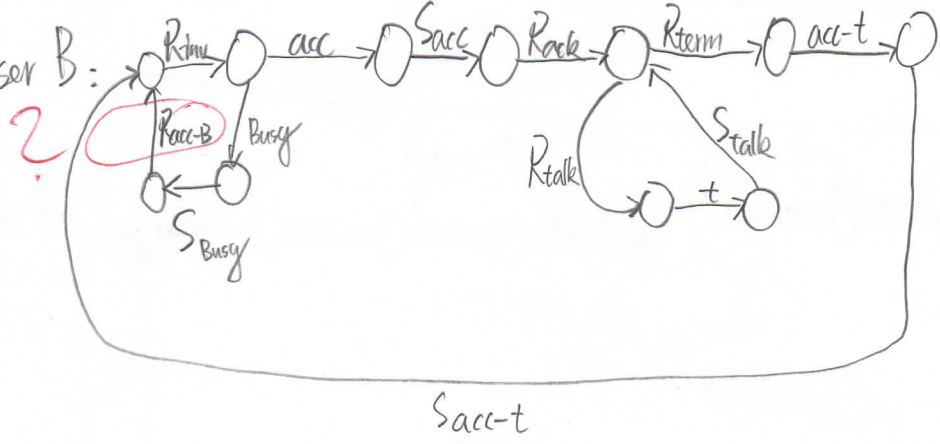 ser B:
Rinv acc Sacc Rack Rterm acc-t
?
Racc-B Busy Rtalk t Stalk
SBusy
Sacc-t